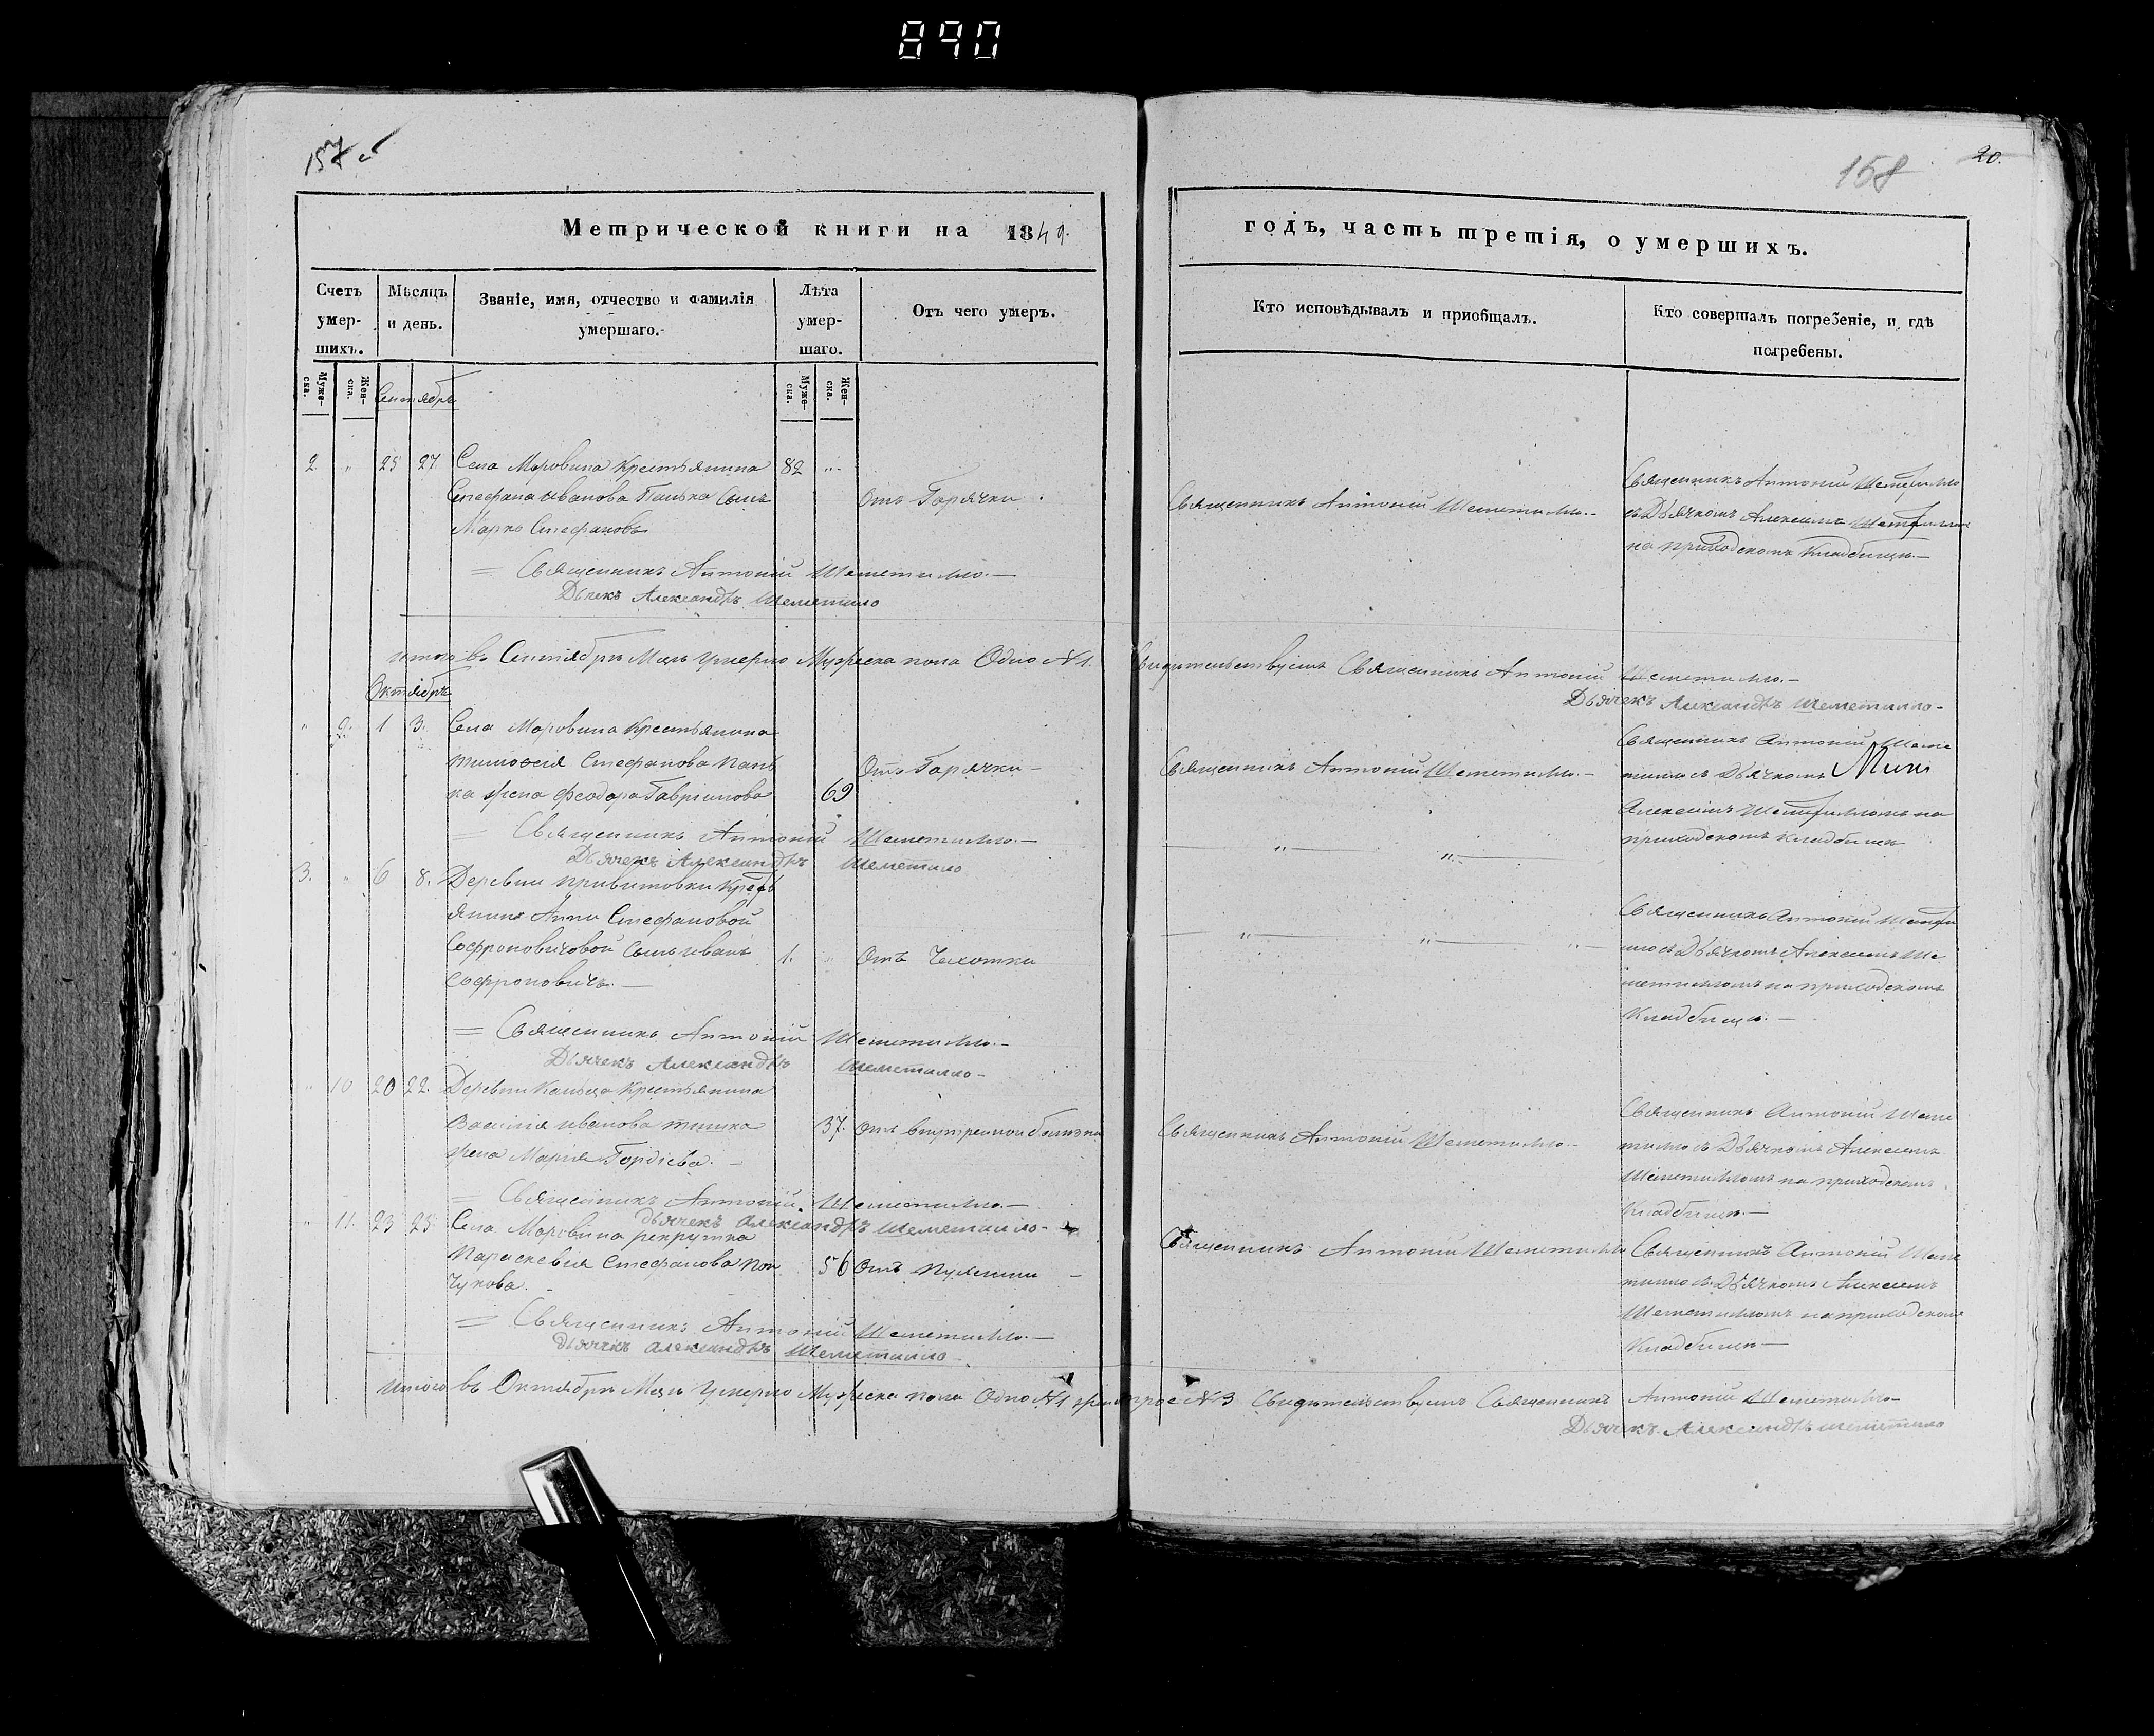 890
157 об
158
20.
Метрической книги на 1849.
годъ, часть третія, о умершихъ.
Счетъ умер-шихъ.
Мѣсяцъ и день.
Званіе, имя, отчество и фамилія умершаго.
Лѣта умер-шаго.
Отъ чего умеръ.
Кто исповѣдывалъ и приобщалъ.
Кто совершалъ погребеніе, и гдѣ погребены.
Муже-ска.
Жен-ска.
Муже-ска.
Жен-ска.
Сентябрь
2. " 25 27. Села Моровина Крестьянина 82 "
Стефана Иванова Панька Сынъ
Марко Стефановъ
Отъ Горячки.
Священникъ Антоній Шеметилло.-
Священникъ Антоній Шеметилло
съ Дьячкомъ Алексѣемъ
на приходскомъ Кладбищѣ.-
= Священникъ Антоній Шеметилло.-
Дьячекъ Александръ Шеметилло
итого въ Сентябрѣ Мцѣ Умерло Мужеска пола Одно №1. Свидѣтельствуемъ Священникъ Антоній Шеметилло.-
Дьячекъ Александръ Шеметилло-
Октябрь
" 9. 1 3. Села Моровина Крестьянина
Тимофея Стефанова Пань
ка жена Феодора Гавриилова 69
Отъ Горячки-
Священникъ Антоній Шеметилло.-
Священникъ Антоній Шеме
тилло съ Дьячкомъ
Алексѣемъ Шеметилломъ на
приходскомъ кладбищѣ
= Священникъ Антоній Шеметилло.-
Дьячекъ Александръ Шеметилло
3. " 6 8. Деревни Кресть
янки Анны Стефановой
Софроновичовой Сынъ Иванъ 1. "
Софроновичъ.-
Отъ Чахотки
Священникъ Антоній Шемети
лло съ Дьячкомъ Алексѣемъ Ше
метилломъ на приходскомъ
Кладбищѣ.-
= Священникъ Антоній Шеметилло.-
Дьячекъ Александръ Шеметилло-
" 10 20 22. Деревни Крестьянина
Василія Иванова 37.
жена Марія Гордіева.-
Отъ внутренной болѣзни
Священникъ Антоній Шеметилло-
Священникъ Антоній Шеме
тилло съ Дьячкомъ Алексѣемъ
Шеметилломъ на приходскомъ
Кладбищѣ.-
= Священникъ Антоній Шеметилло.-
Дьячекъ Александръ Шеметилло-
" 11. 23 25. Села Моровина рекрутка
Параскевія Стефанова 56
Отъ
Священникъ Антоній Шеметилло
Священникъ Антоній Шеме
тилло съ Дьячкомъ Алексѣемъ
Шеметилломъ на приходскомъ
Кладбищѣ-
= Священникъ Антоній Шеметилло.-
Дьячекъ Александръ Шеметилло
Итого въ Октябрѣ Мцѣ Умерло Мужеска пола Одно №1 №3 Свидѣтельствуемъ Священникъ Антоній Шеметилло-
Дьячекъ Александръ Шеметилло